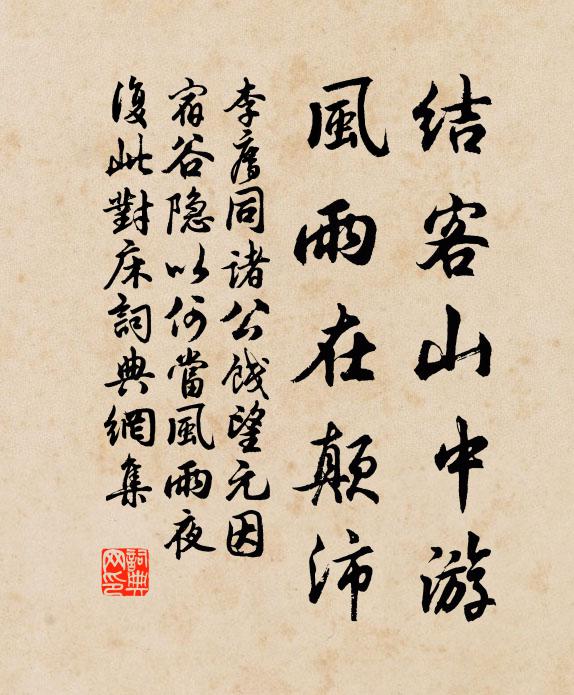 結客山中游
風雨在顛沛
李廌同諸公餞望元因
宿谷隐以何當風雨夜
復此對床詞典網集
詞典网印